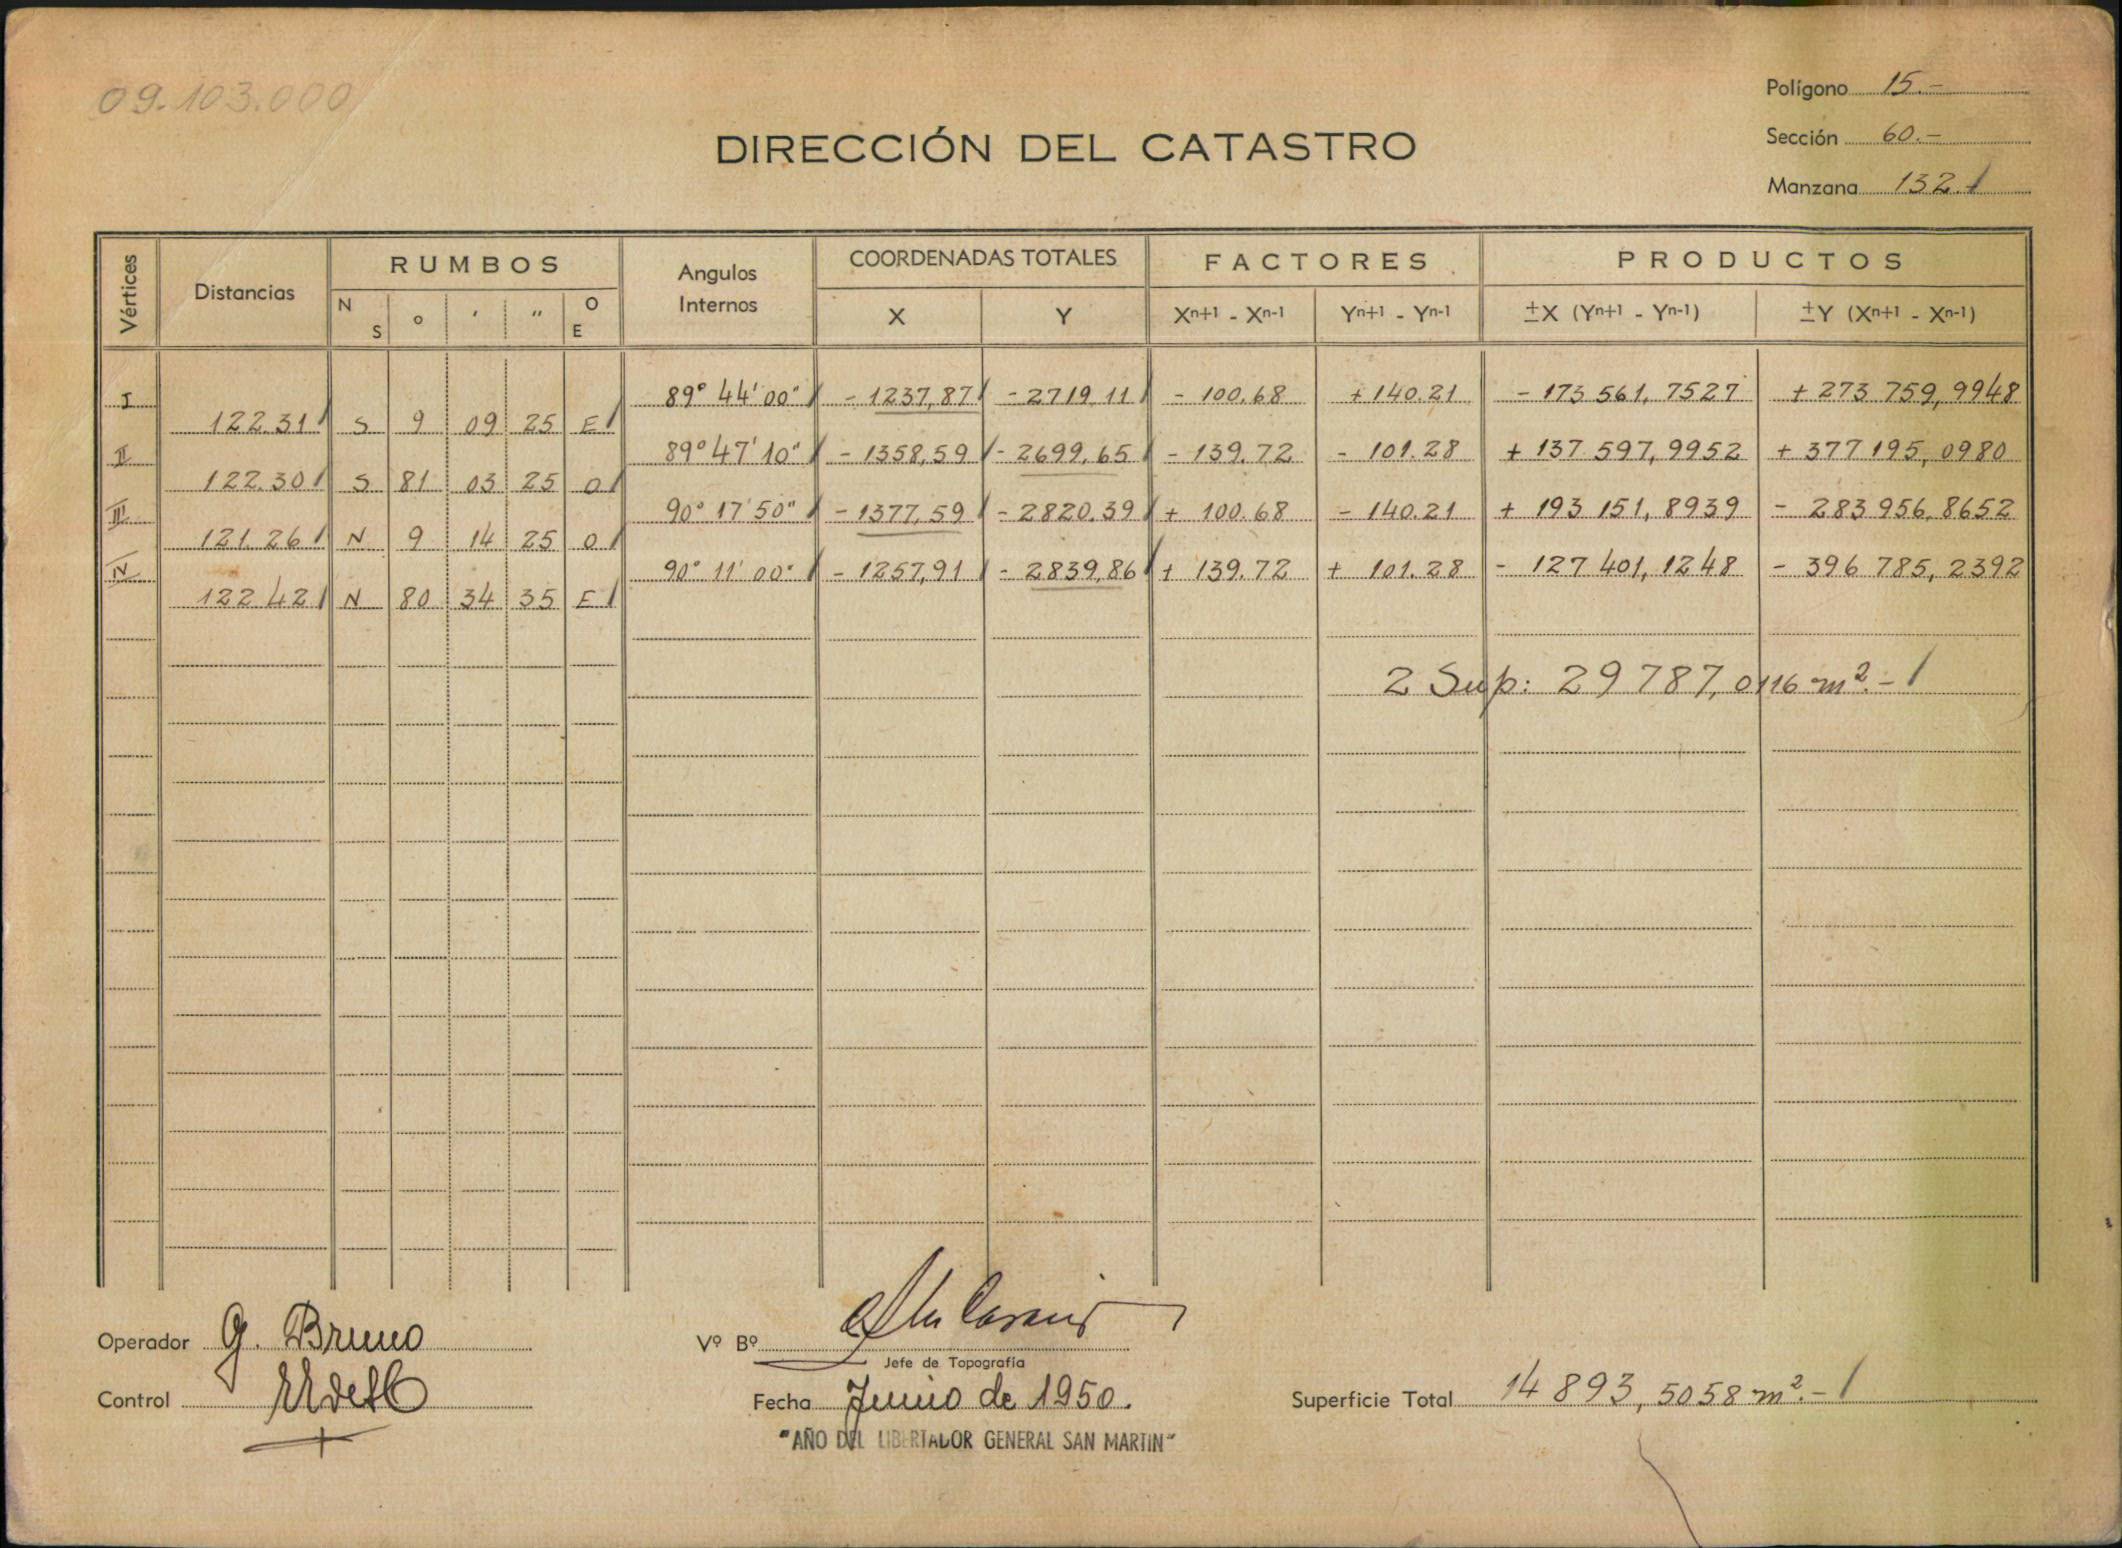 09.103.000
Polígono 15.-
Sección 60.-
Manzana 132.-
DIRECCIÓN DEL CATASTRO
Vértices Distancias RUMBOS Angulos Internos COORDENADAS TOTALES FACTORES PRODUCTOS
N S o ' " O E X Y Xn+1 - Xn-1 Yn+1 - Yn-1 ±X (Yn+1 - Yn-1) ±Y (Xn+1 - Xn-1)
I 89° 44' 00" - 1237,87 - 2719,11 - 100.68 + 140.21 - 173 561,7527 + 273 759,9948
122.31 S 9 09 25 E
II 89° 47' 10" - 1358,59 - 2699,65 - 139.72 - 101.28 + 137 597,9952 + 377 195,0980
122.30 S 81 03 25 O
III 90° 17' 50" - 1377,59 - 2820,39 + 100.68 - 140.21 + 193 151,8939 - 283 956,8652
121.26 N 9 14 25 O
IV 90° 11' 00" - 1257,91 - 2839,86 + 139.72 + 101.28 - 127 401,1248 - 396 785,2392
122.42 N 80 34 35 E
2 Sup: 29 787,0116 m².-
Operador G. Bruno
Vº Bº
Jefe de Topografía
Control
Fecha Junio de 1950.
Superficie Total 14 893,5058 m².-
"AÑO DEL LIBERTADOR GENERAL SAN MARTIN"